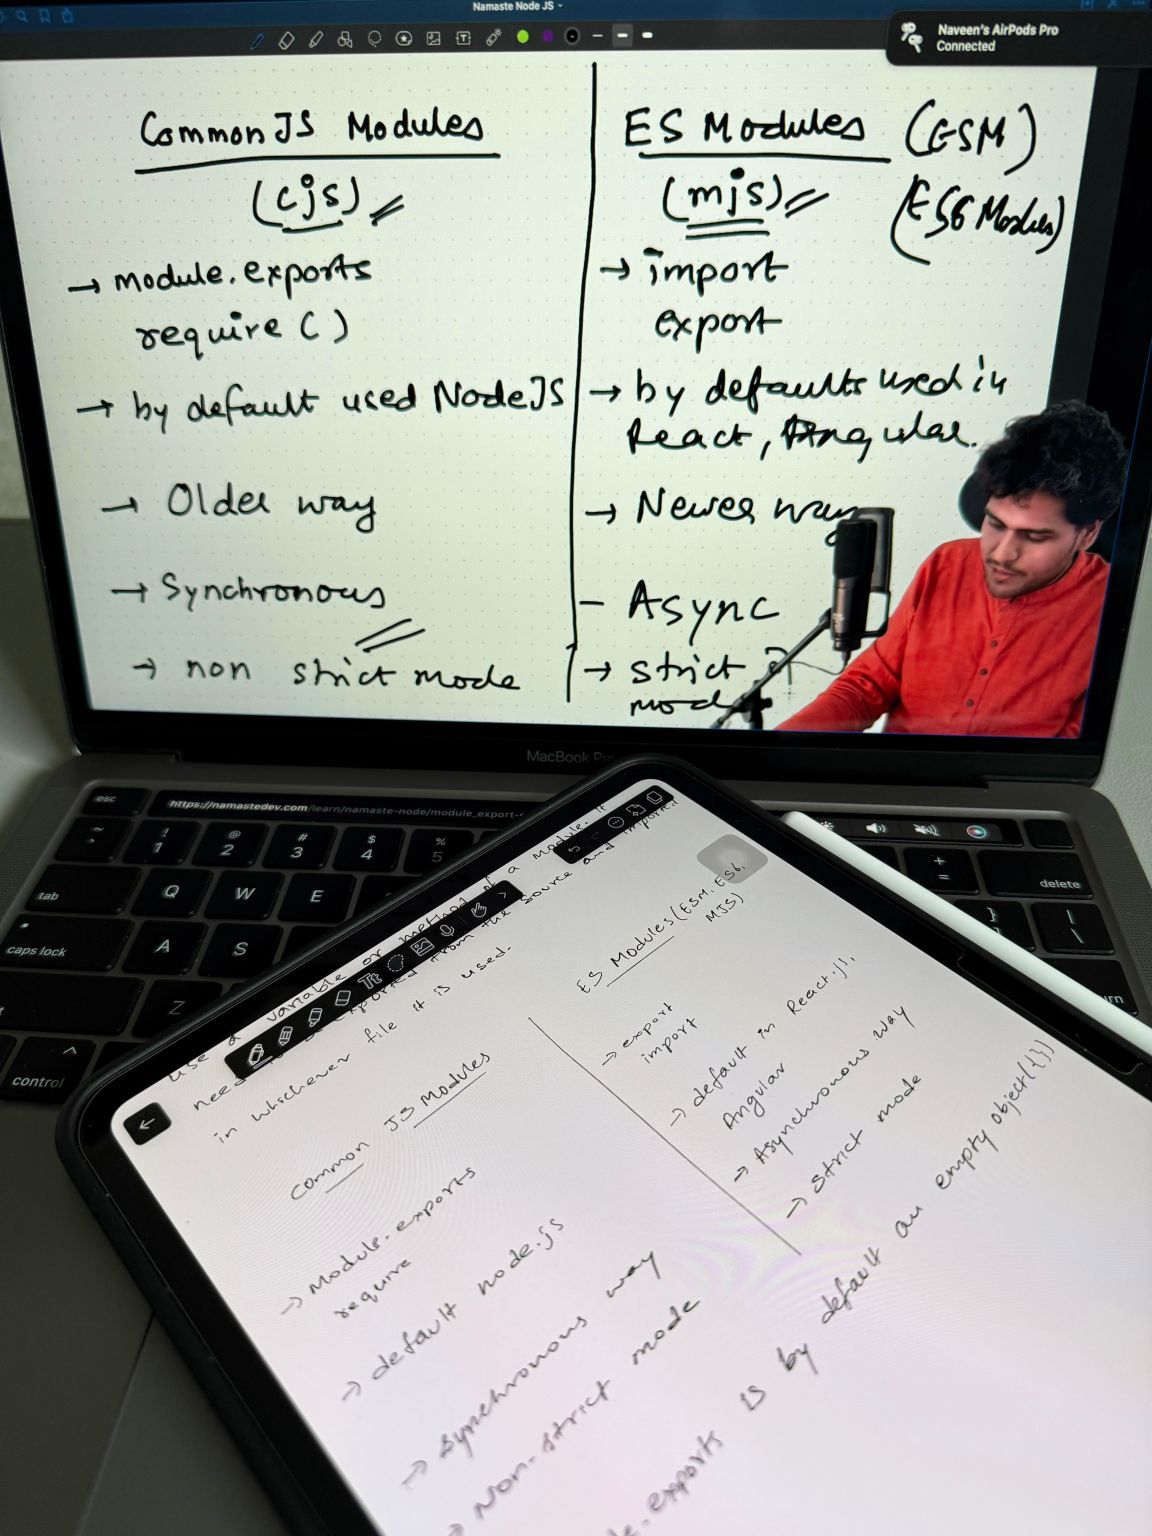 Namaste Node JS
Naveen's AirPods Pro
Connected
CommonJS Modules
(cjs)
→ module.exports
require ( )
→ by default used NodeJS
→ Older way
→ Synchronous
→ non strict mode
ES Modules (ESM)
(mjs)
(ES6 Modules)
→ import
export
→ by defaults used in
React, Angular.
→ Newer way
- Async
→ strict
mode
MacBook Pro
esc
https://namastedev.com/learn/namaste-node/module_export-
~
`
!
1
@
2
#
3
$
4
%
5
+
=
delete
tab
Q
W
E
}
]
|
\
caps lock
A
S
Z
control
use a variable or method of a module. It
need exported from the source and imported
in whichever file it is used.
Common JS Modules
→ Module.exports
require
→ default node.js
→ Synchronous way
→ Non-strict mode
ES Modules (ESM, ES6,
MJS)
→ export
import
→ default in React.js,
Angular
→ Asynchronous way
→ Strict mode
exports is by default an empty object({})